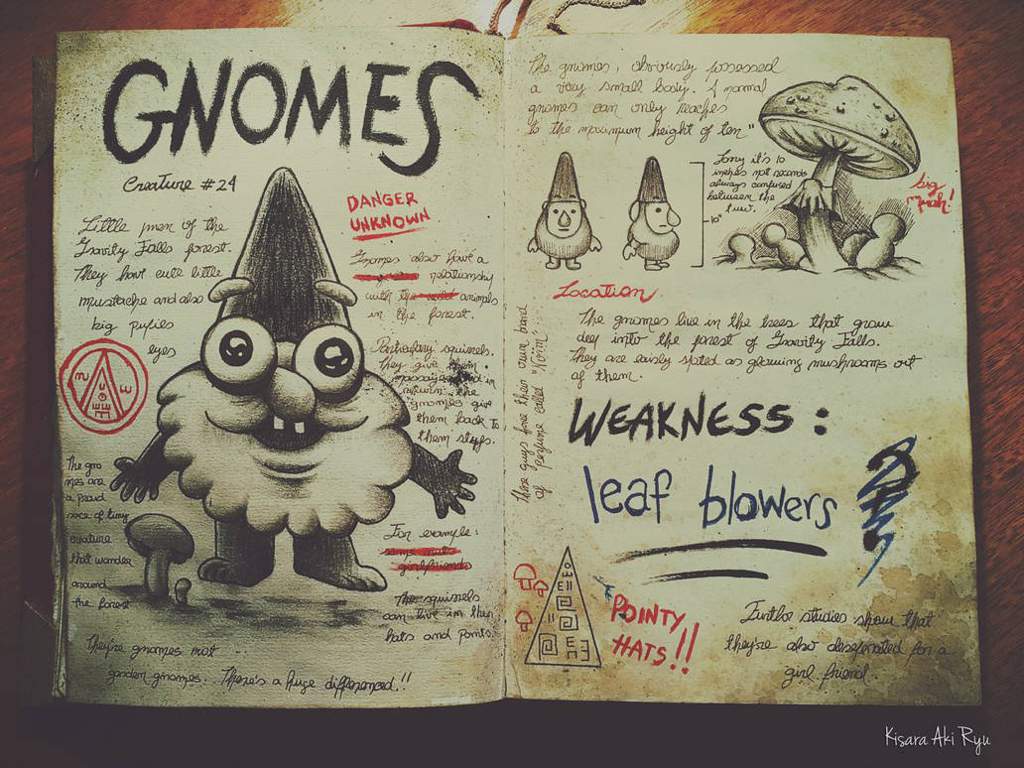 GNOMES
Creature #24
DANGER
UNKNOWN
Little men of the
Gravity Falls forest.
They have cute little
mustache and also
big pupies
eyes
Gnomes also have a
relationship
with the animals
in the forest.
Particulary squirrels.
They give them
massages and in
return, the
gnomes give
them back to
them
The gno
mes are
a proud
race of tiny
creature
that wander
around
the forest
For example:
some
girlfriends
The squirrels
can live in their
hats and pants.
They're gnomes not
garden gnomes. There's a huge differenced!!
The gnomes, obviously possessed
a very small body. A normal
gnomes can only reaches
to the maximum height of ten"
10"
it's 10
inches not seconds
always confused
between the
two.
big
mush!
Location
The gnomes live in the trees that grow
deep into the forest of Gravity Falls.
They are easily spoted as glowing mushrooms out
of them.
These guys have their own brand
of perfume called "Norm"
WEAKNESS:
leaf blowers
POINTY
HATS!!
Further studies show that
they're also desperated for a
girl friend.
Kisara Aki Ryu